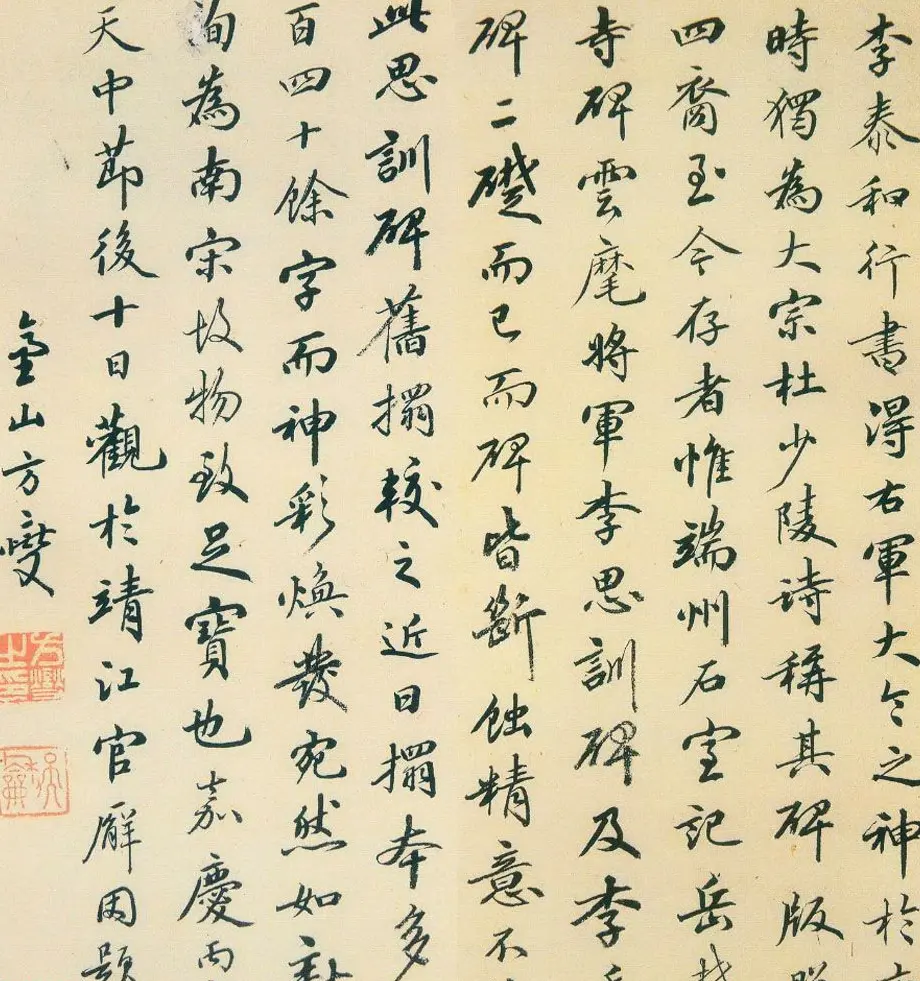 李泰和行書得右軍大令之神於
時獨為大宗杜少陵詩稱其碑版
四裔至今存者惟端州石室記岳
寺碑雲麾將軍李思訓碑及李
碑二礎而已而碑皆斷蝕精意不
此思訓碑舊搨較之近日搨本多
百四十餘字而神彩煥發宛然如
洵為南宋故物致足寶也嘉慶丙
天中節後十日觀於靖江官廨因題
臺山方燮
方燮之印